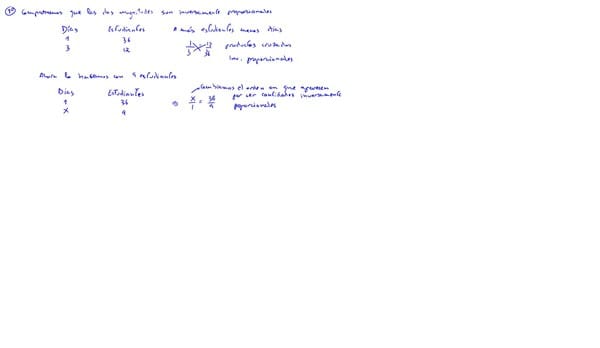 Comprobamos que las dos magnitudes son inversamente proporcionales
Días Estudiantes A más estudiantes menos días
1 36
3 12
1/3 12/36 productos cruzados
Inv. proporcionales
Ahora lo hacemos con 9 estudiantes
Días Estudiantes
1 36
x 9
⇒ x/1 = 36/9
Cambiamos el orden en que aparecen
por ser cantidades inversamente
proporcionales